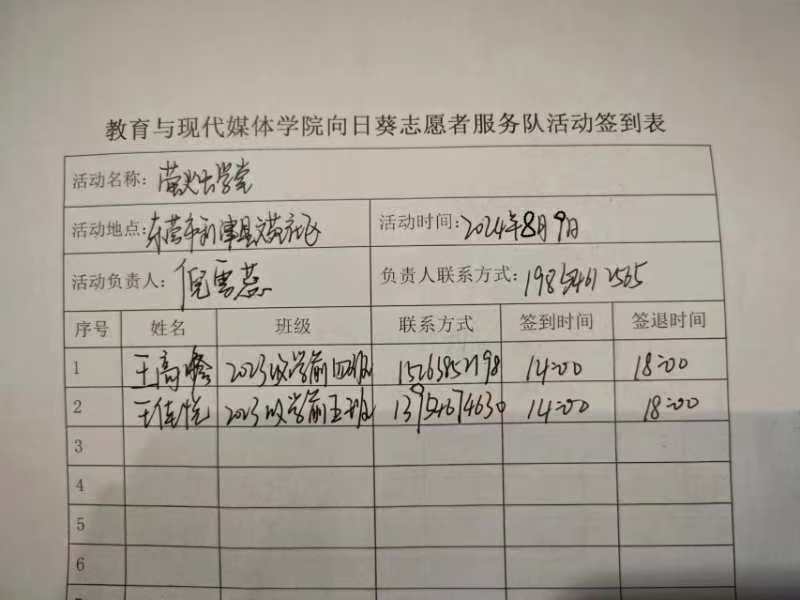 教育与现代媒体学院向日葵志愿者服务队活动签到表
活动名称：萤火大学堂
活动地点：东营市利津县文苑社区 活动时间：2024年8月9日
活动负责人：倪雪蕊 负责人联系方式：19854612565
序号 姓名 班级 联系方式 签到时间 签退时间
1 王高峰 2023级学前四班 15265852198 14:00 18:00
2 王佳悦 2023级学前五班 13954674630 14:00 18:00
3
4
5
6